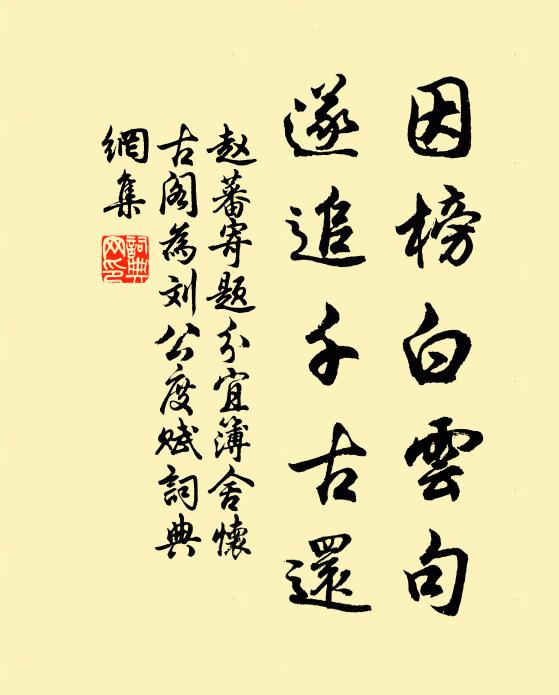 因榜白雲句
遂追千古還
赵蕃寄题分宜簿舍懷
古阁為刘公度赋詞典
網集
詞典
网印